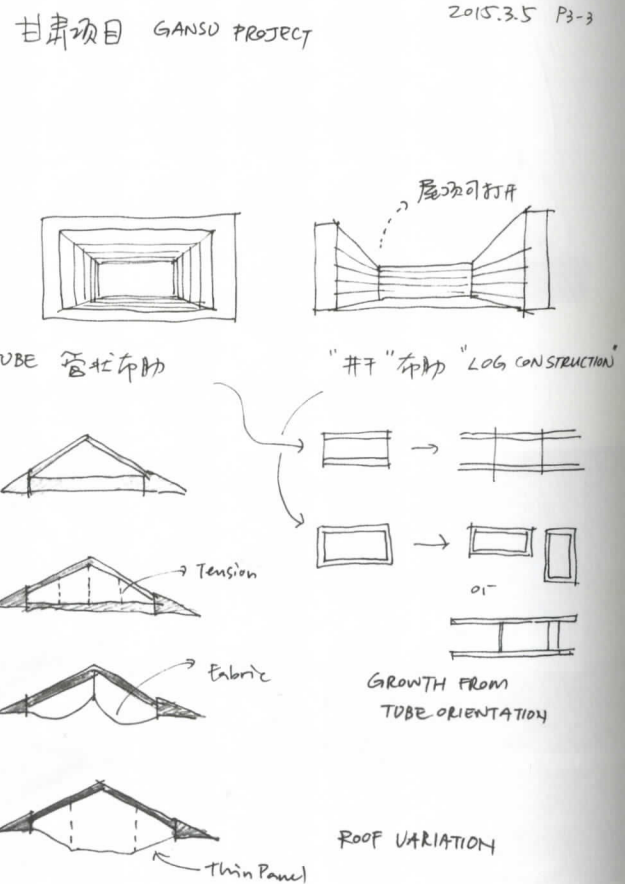 2015.3.5 P3-3
甘肃项目 GANSU PROJECT
屋顶可打开
UBE 管状布肋
"井干"布肋 "LOG CONSTRUCTION"
Tension
or
Fabric
GROWTH FROM
TUBE ORIENTATION
ROOF VARIATION
Thin Panel